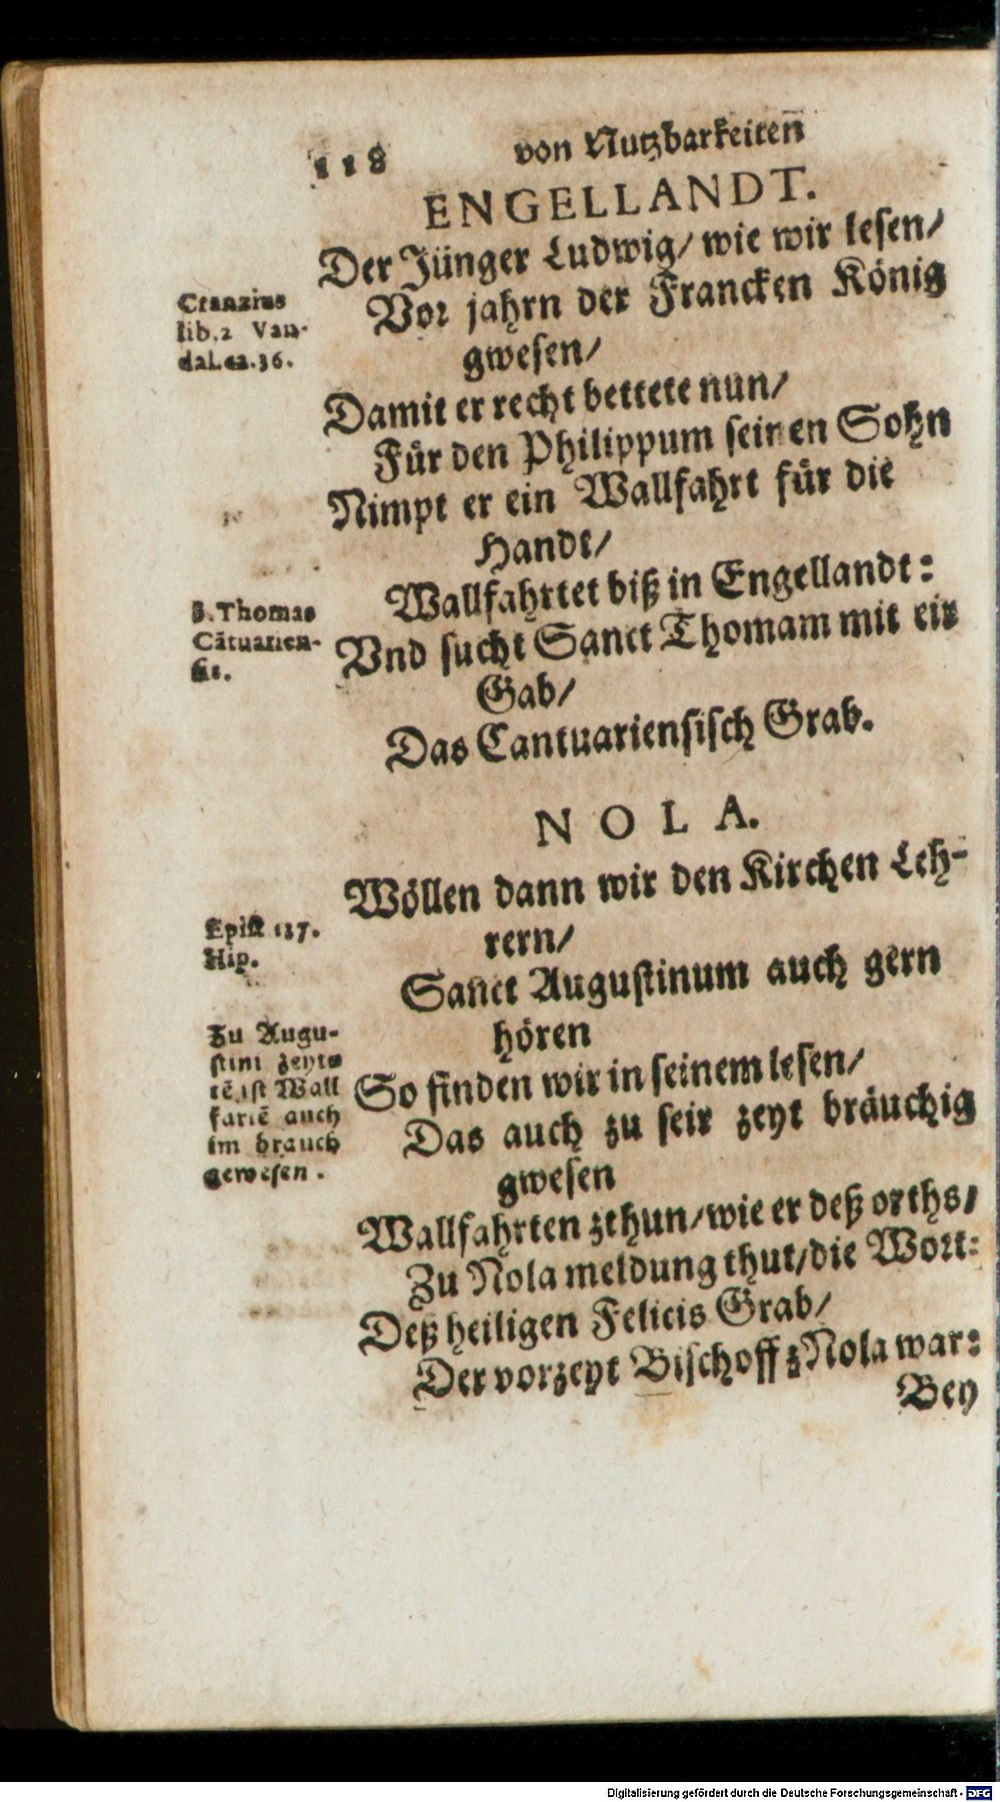 118 von Nutzbarkeiten
ENGELLANDT.
Der Jünger Ludwig/ wie wir lesen/
Vor jahrn der Francken König
gwesen/
Cranzius
lib.2 Van-
dal. ca.36.
Damit er recht bettete nun/
Für den Philippum seinen Sohn
Nimpt er ein Wallfahrt für die
Handt/
Wallfahrtet biß in Engellandt:
Vnd sucht Sanct Thomam mit eir
Gab/
S. Thomas
Cãtuarien-
sis.
Das Cantuariensisch Grab.
NOLA.
Wöllen dann wir den Kirchen Leh-
rern/
Epist 137.
Hip.
Sanct Augustinum auch gern
hören
So finden wir in seinem lesen/
Das auch zu seir zeyt bräuchig
gwesen
Zu Augu-
stini zeytẽ
tẽ ist Wall
fartẽ auch
im brauch
gewesen.
Wallfahrten zthun/wie er deß orths/
Zu Nola meldung thut/die Wort:
Deß heiligen Felicis Grab/
Der vorzeyt Bischoff z Nola war:
Bey
Digitalisierung gefördert durch die Deutsche Forschungsgemeinschaft - DFG